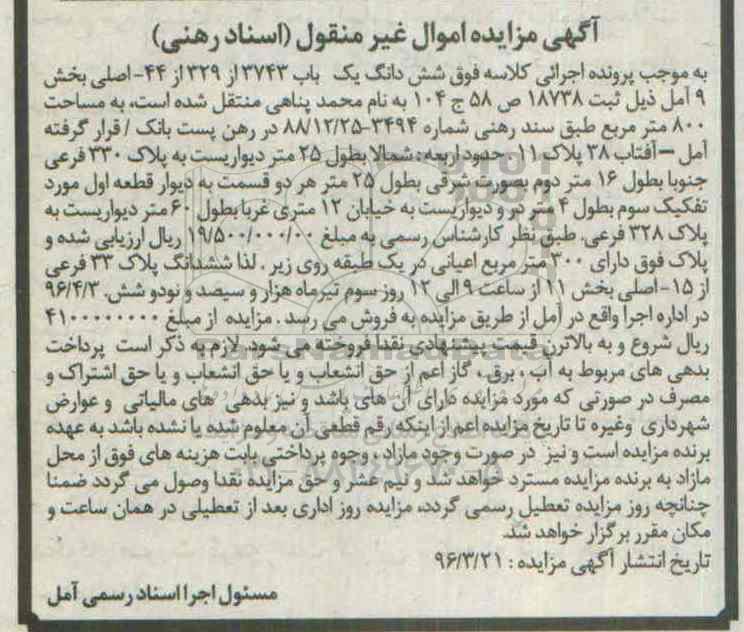 آگهی مزایده اموال غیر منقول (اسناد رهنی)
به موجب پرونده اجرائی کلاسه فوق شش دانگ یک باب ۳۷۴۳ از ۳۲۹ از ۴۴-اصلی بخش
۹ آمل ذیل ثبت ۱۸۷۳۸ ص ۵۸ ج ۱۰۴ به نام محمد پناهی منتقل شده است، به مساحت
۸۰۰ متر مربع طبق سند رهنی شماره ۳۴۹۴-۸۸/۱۲/۲۵ در رهن پست بانک / قرار گرفته
آمل – آفتاب ۳۸ پلاک ۱۱ ، حدود اربعه : شمالا بطول ۲۵ متر دیواریست به پلاک ۳۳۰ فرعی
جنوبا بطول ۱۶ متر دوم بصورت شرقی بطول ۲۵ متر هر دو قسمت به دیوار قطعه اول مورد
تفکیک سوم بطول ۴ متر در و دیواریست به خیابان ۱۲ متری غربا بطول ۶۰ متر دیواریست به
پلاک ۳۲۸ فرعی. طبق نظر کارشناس رسمی به مبلغ ۱۹/۵۰۰/۰۰۰/۰۰ ریال ارزیابی شده و
پلاک فوق دارای ۳۰۰ متر مربع اعیانی در یک طبقه روی زیر . لذا ششدانگ پلاک ۳۳ فرعی
از ۱۵-اصلی بخش ۱۱ از ساعت ۹ الی ۱۲ روز سوم تیرماه هزار و سیصد و نودو شش. ۹۶/۴/۳
در اداره اجرا واقع در آمل از طریق مزایده به فروش می رسد ، مزایده از مبلغ ۴۱۰۰۰۰۰۰۰۰
ریال شروع و به بالاترن قیمت پیشنهادی نقدا فروخته می شود. لازم به ذکر است پرداخت
بدهی های مربوط به آب ، برق ، گاز اعم از حق انشعاب و یا حق انشعاب و یا حق اشتراک و
مصرف در صورتی که مورد مزایده دارای آن های باشد و نیز بدهی های مالیاتی و عوارض
شهرداری وغیره تا تاریخ مزایده اعم از اینکه رقم قطعی آن معلوم شده یا نشده باشد به عهده
برنده مزایده است و نیز در صورت وجود مازاد ، وجوه پرداختی بابت هزینه های فوق از محل
مازاد به برنده مزایده مسترد خواهد شد و نیم عشر و حق مزایده نقدا وصول می گردد ضمنا
چنانچه روز مزایده تعطیل رسمی گردد، مزایده روز اداری بعد از تعطیلی در همان ساعت و
مکان مقرر برگزار خواهد شد.
تاریخ انتشار آگهی مزایده : ۹۶/۳/۲۱
مسئول اجرا اسناد رسمی آمل